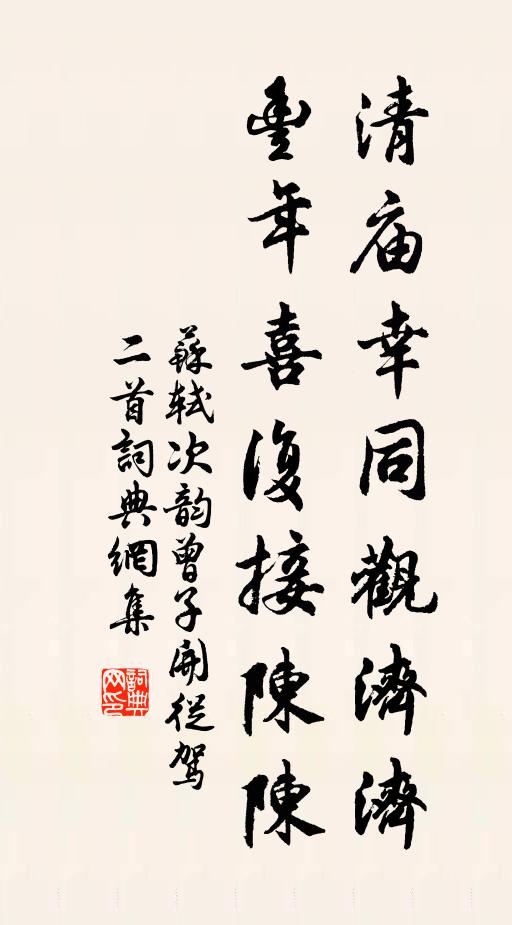 清庙幸同觀濟濟
豐年喜復接陳陳
蘇軾次韵曾子開從駕
二首詞典網集
詞典
网印